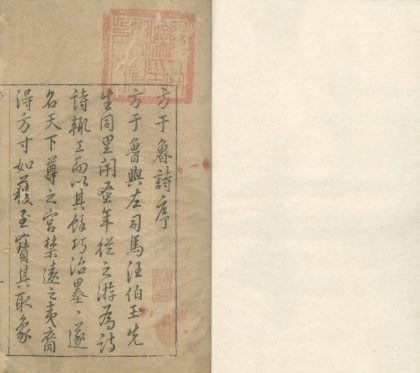 方于魯詩序
方于魯與左司馬汪伯玉先
生同里閈蚤年從之游為詩
詩輒工而以其餘巧治墨、遂
名天下尊之宮禁遠之夷裔
得方寸如獲至寶其取象